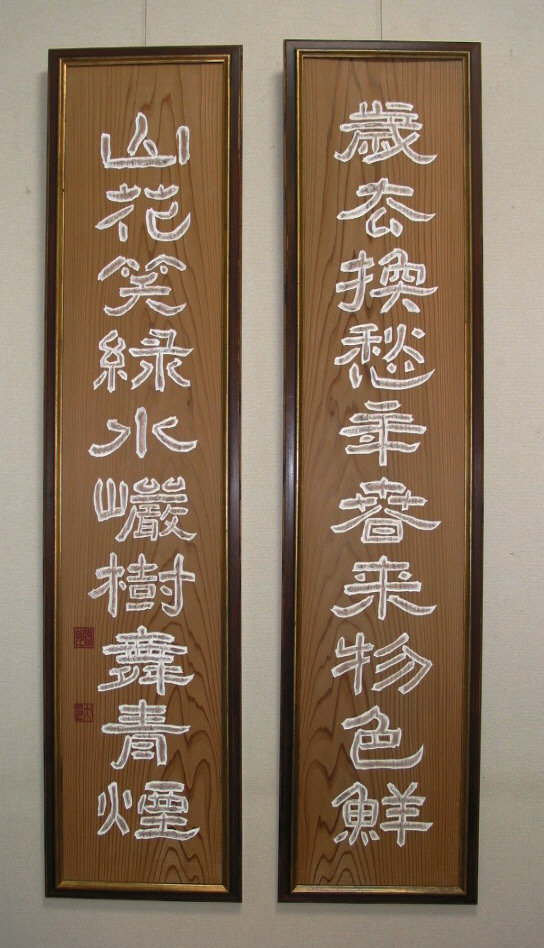 歲去換愁年春来物色鮮
山花笑緑水巖樹舞青煙